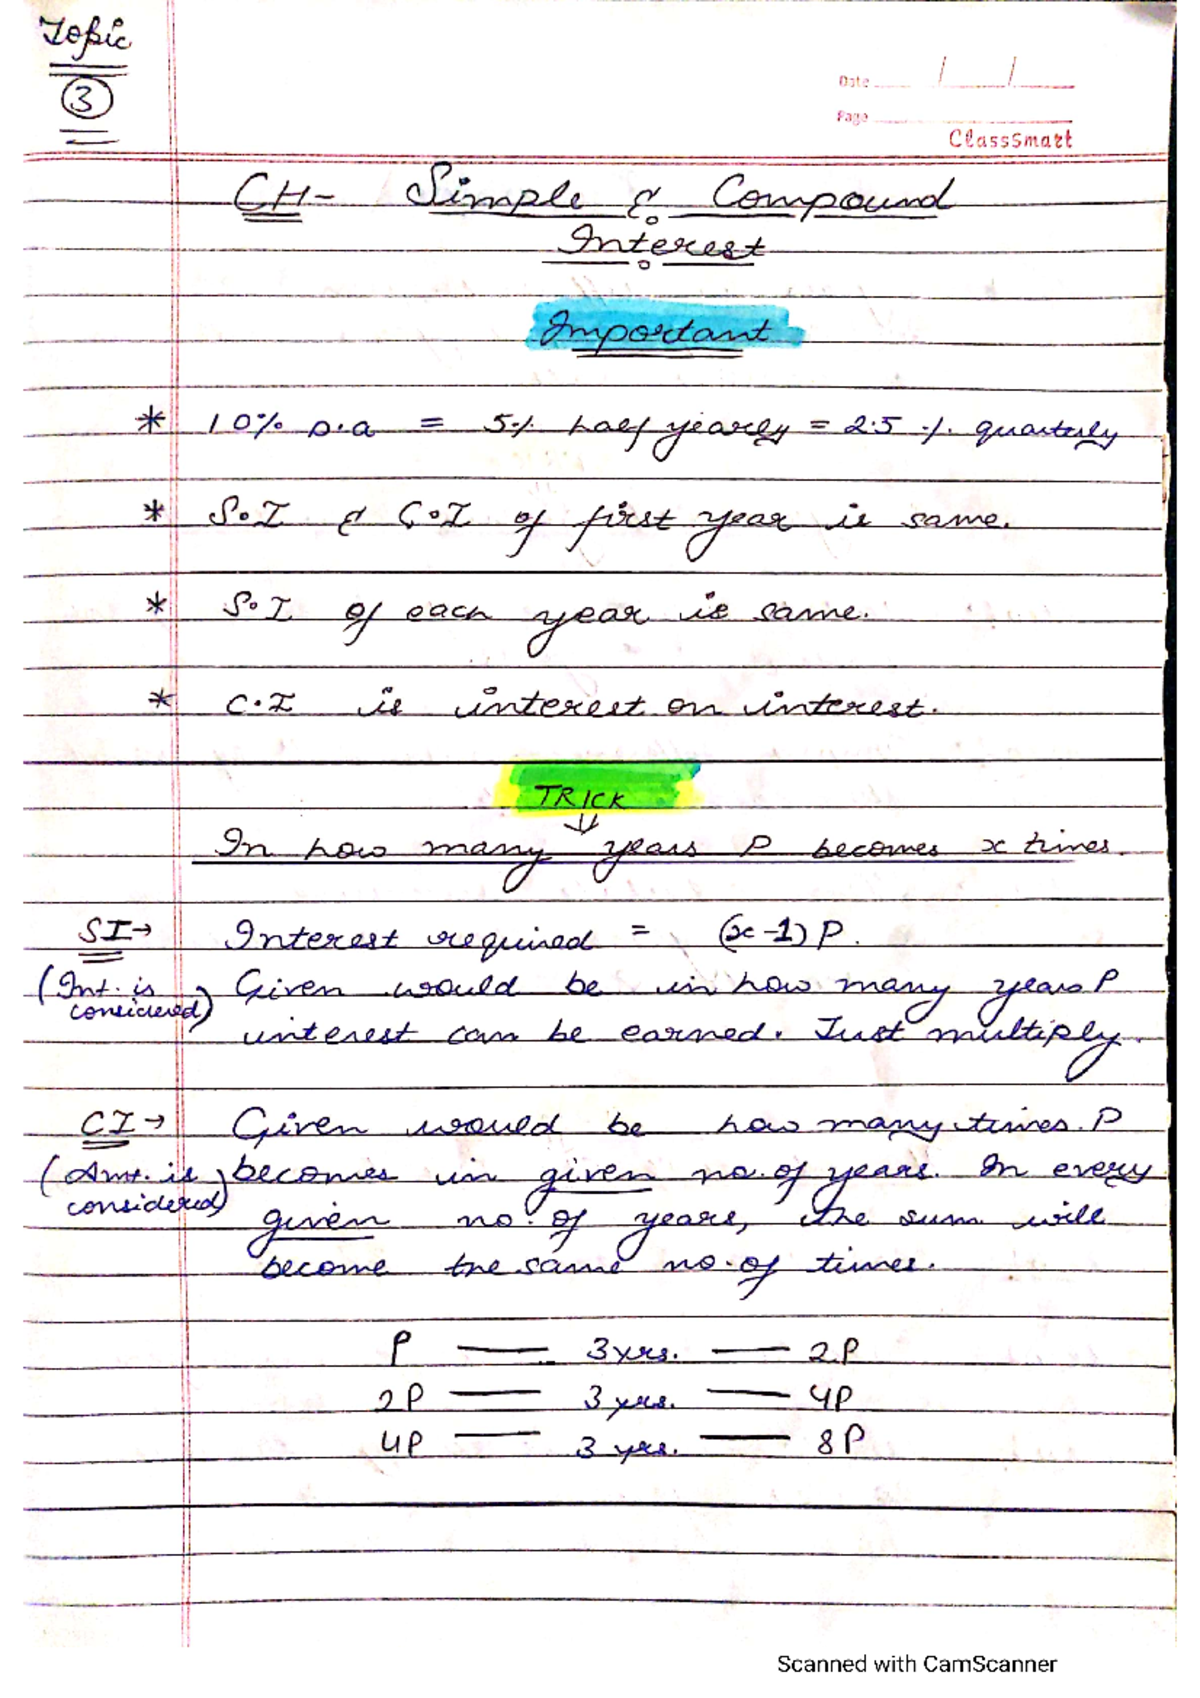 Topic
3
Date
Page
ClassSmart
CH- Simple & Compound
Interest
Important
* 10% p.a = 5% half yearly = 2.5 % quarterly
* S.I & C.I of first year is same.
* S.I of each year is same.
* C.I is interest on interest.
TRICK
↓
In how many years P becomes x times.
SI→ Interest required = (x-1) P.
(Int. is considered) Given would be in how many years P
interest can be earned. Just multiply.
CI→ Given would be how many times P
(Amt. is considered) becomes in given no. of years. In every
given no. of years, the sum will
become the same no. of times.
P — 3 yrs. — 2P
2P — 3 yrs. — 4P
4P — 3 yrs. — 8P
Scanned with CamScanner